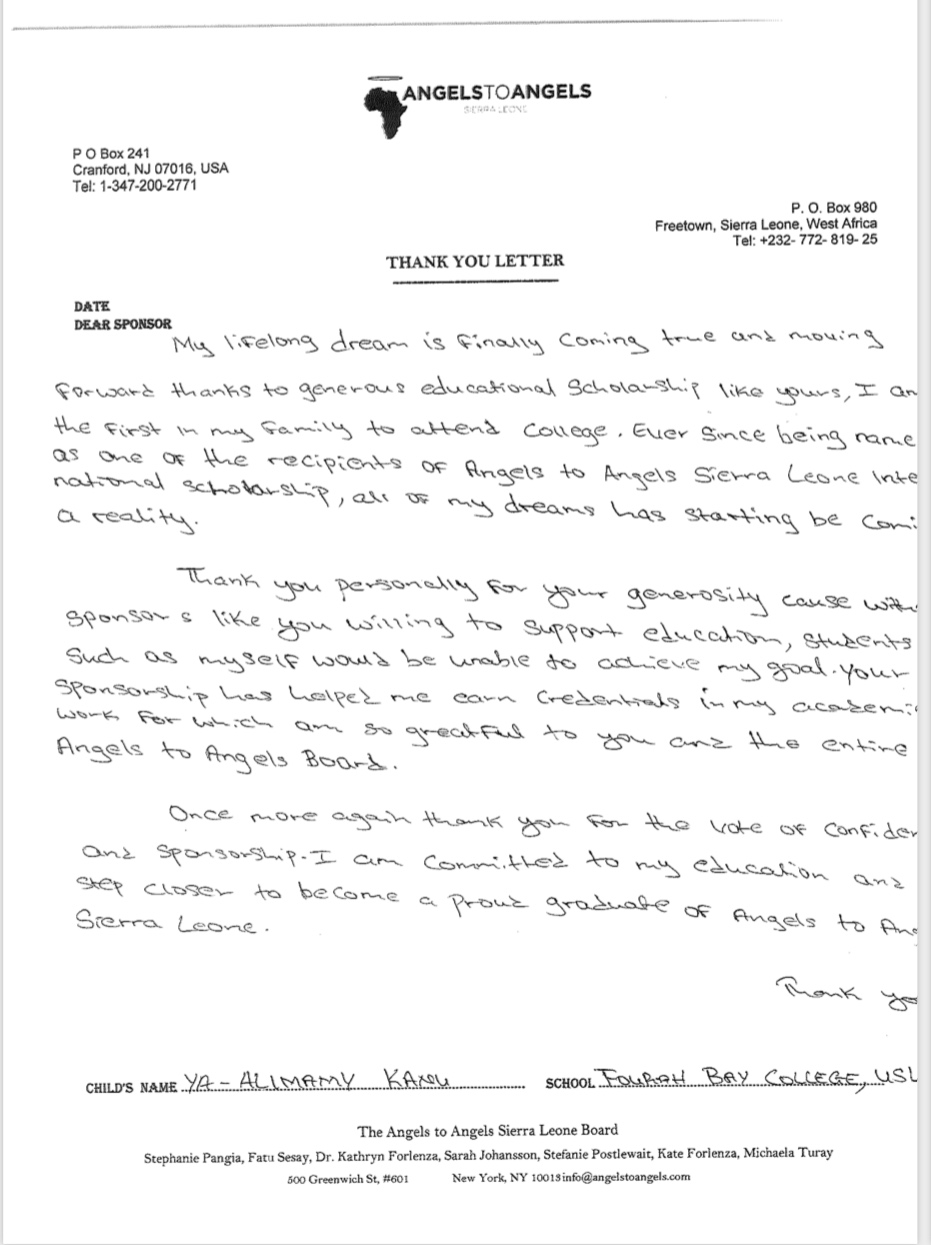 ANGELSTOANGELS
SIERRA LEONE
P O Box 241
Cranford, NJ 07016, USA
Tel: 1-347-200-2771
P. O. Box 980
Freetown, Sierra Leone, West Africa
Tel: +232- 772- 819- 25
THANK YOU LETTER
DATE
DEAR SPONSOR
My lifelong dream is finally coming true and moving
forward thanks to generous educational Scholarship like yours, I am
the first in my family to attend College. Ever Since being name
as one of the recipients of Angels to Angels Sierra Leone Inte
national Scholarship, all of my dreams has starting be comi
a reality.
Thank you personally for your generosity cause with
sponsors like you willing to support education, students
Such as myself would be unable to achieve my goal. your
Sponsorship has helped me earn Credentials in my academic
work for which am so greatful to you and the entire
Angels to Angels Board.
Once more again thank you for the vote of confiden
and sponsorship. I am Committed to my education and
step closer to become a proud graduate of Angels to Ang
Sierra Leone.
Thank you
CHILD'S NAME YA - ALIMAMY KANU SCHOOL FOURAH BAY COLLEGE, USL
The Angels to Angels Sierra Leone Board
Stephanie Pangia, Fatu Sesay, Dr. Kathryn Forlenza, Sarah Johansson, Stefanie Postlewait, Kate Forlenza, Michaela Turay
500 Greenwich St, #601 New York, NY 10013 info@angelstoangels.com